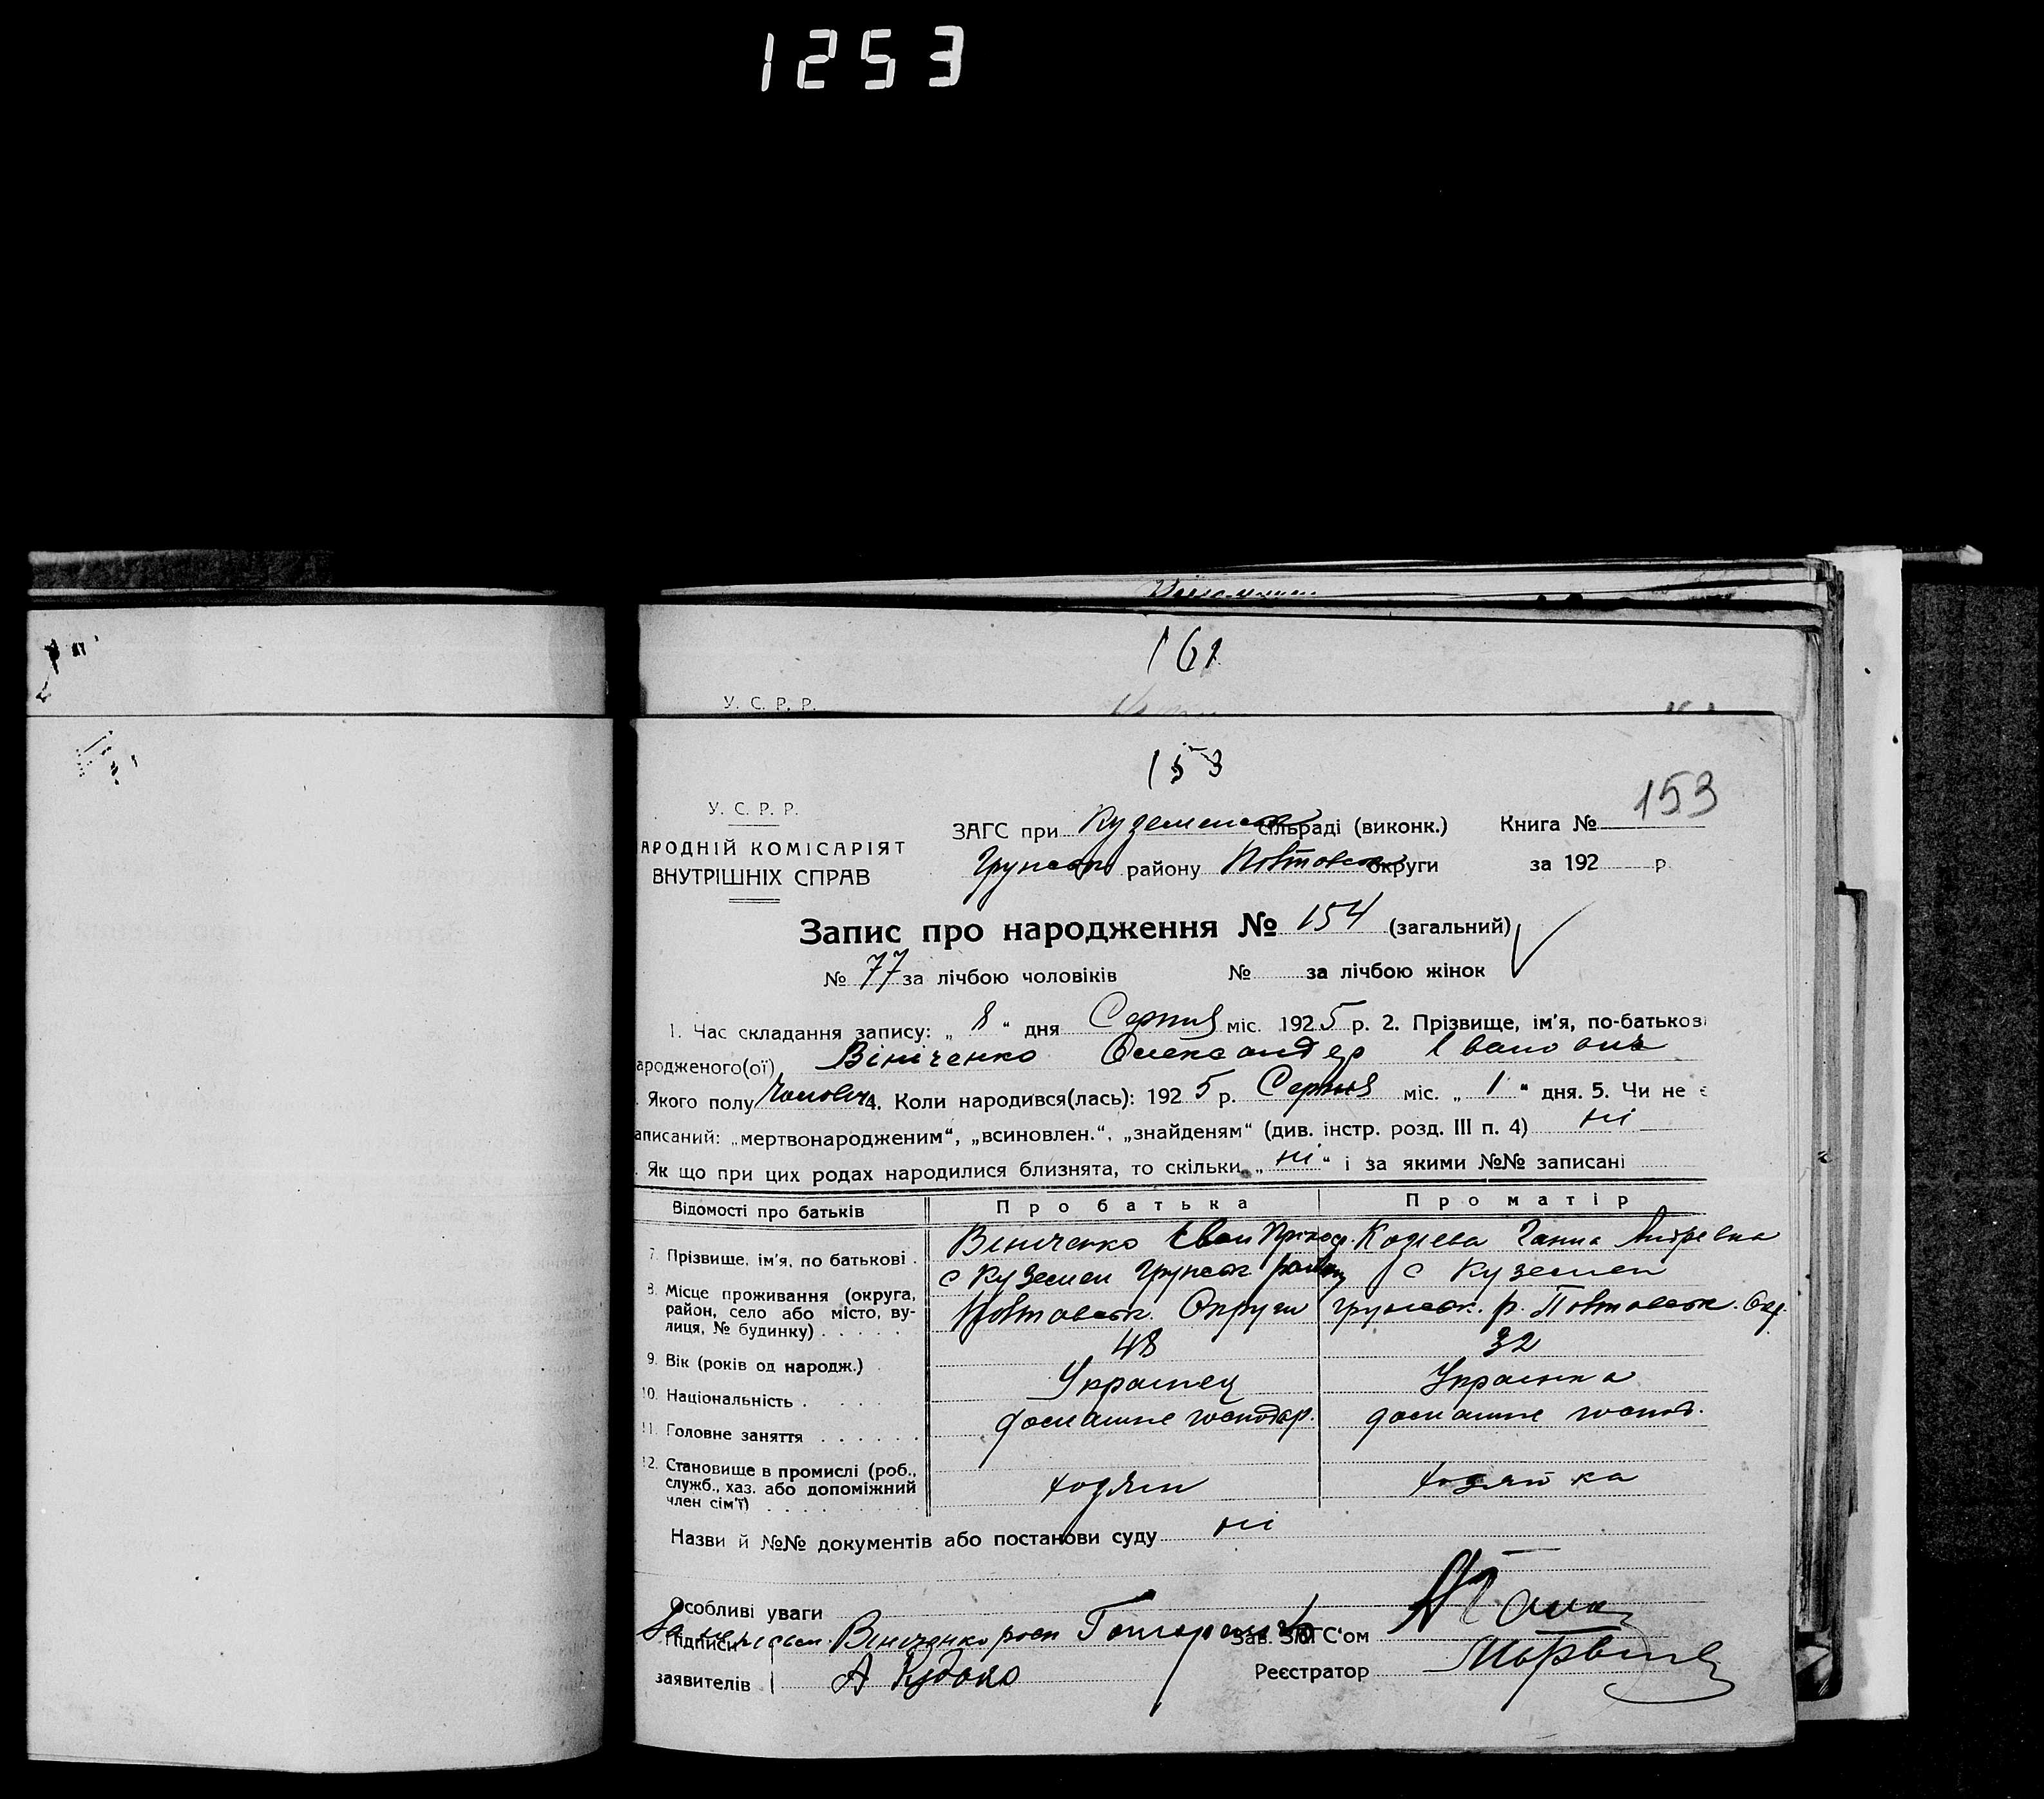 1253
161
У. С. Р. Р.
153
153
У. С. Р. Р.
АРОДНІЙ КОМІСАРІЯТ
ВНУТРІШНІХ СПРАВ
ЗАГС при Куземенск сільраді (виконк.) Книга №
Грунськ району Полтавськ округи за 192 р.
Запис про народження № 154 (загальний)
№ 77 за лічбою чоловіків № за лічбою жінок
1. Час складання запису: „ 8 “ дня Серпня міс. 1925 р. 2. Прізвище, ім’я, по-батькові
ародженого(ої) Вініченко Олександер Іванович
. Якого полу Чоловіч 4. Коли народився(лась): 1925 р. Серпня міс. „ 1 “ дня. 5. Чи не є
аписаний: „мертвонародженим“, „всиновлен.“, „знайденям“ (див. інстр. розд. III п. 4) ні
. Як що при цих родах народилися близнята, то скільки „ ні “ і за якими №№ записані
Відомості про батьків Про батька Про матір
7. Прізвище, ім’я, по батькові . Вініченко Іван Козієва Ганна Андрієвна
8. Місце проживання (округа, район, село або місто, вулиця, № будинку) . . . . . с Куземен Грунськ району Полтавськ. Округи с Куземен грунськ. р. Полтавськ. Окр.
9. Вік (років од народж.) . 48 32
10. Національність . . . . . Українец Українка
11. Головне заняття . . . . . . домашне господар. домашне господ.
12. Становище в промислі (роб., служб., хаз. або допоміжний член сім’ї) . . . . . хозяин хозяйка
Назви й №№ документів або постанови суду ні
Особливі уваги
Підписи Вініченко Зав. ЗАГС‘ом
заявителів А Реєстратор